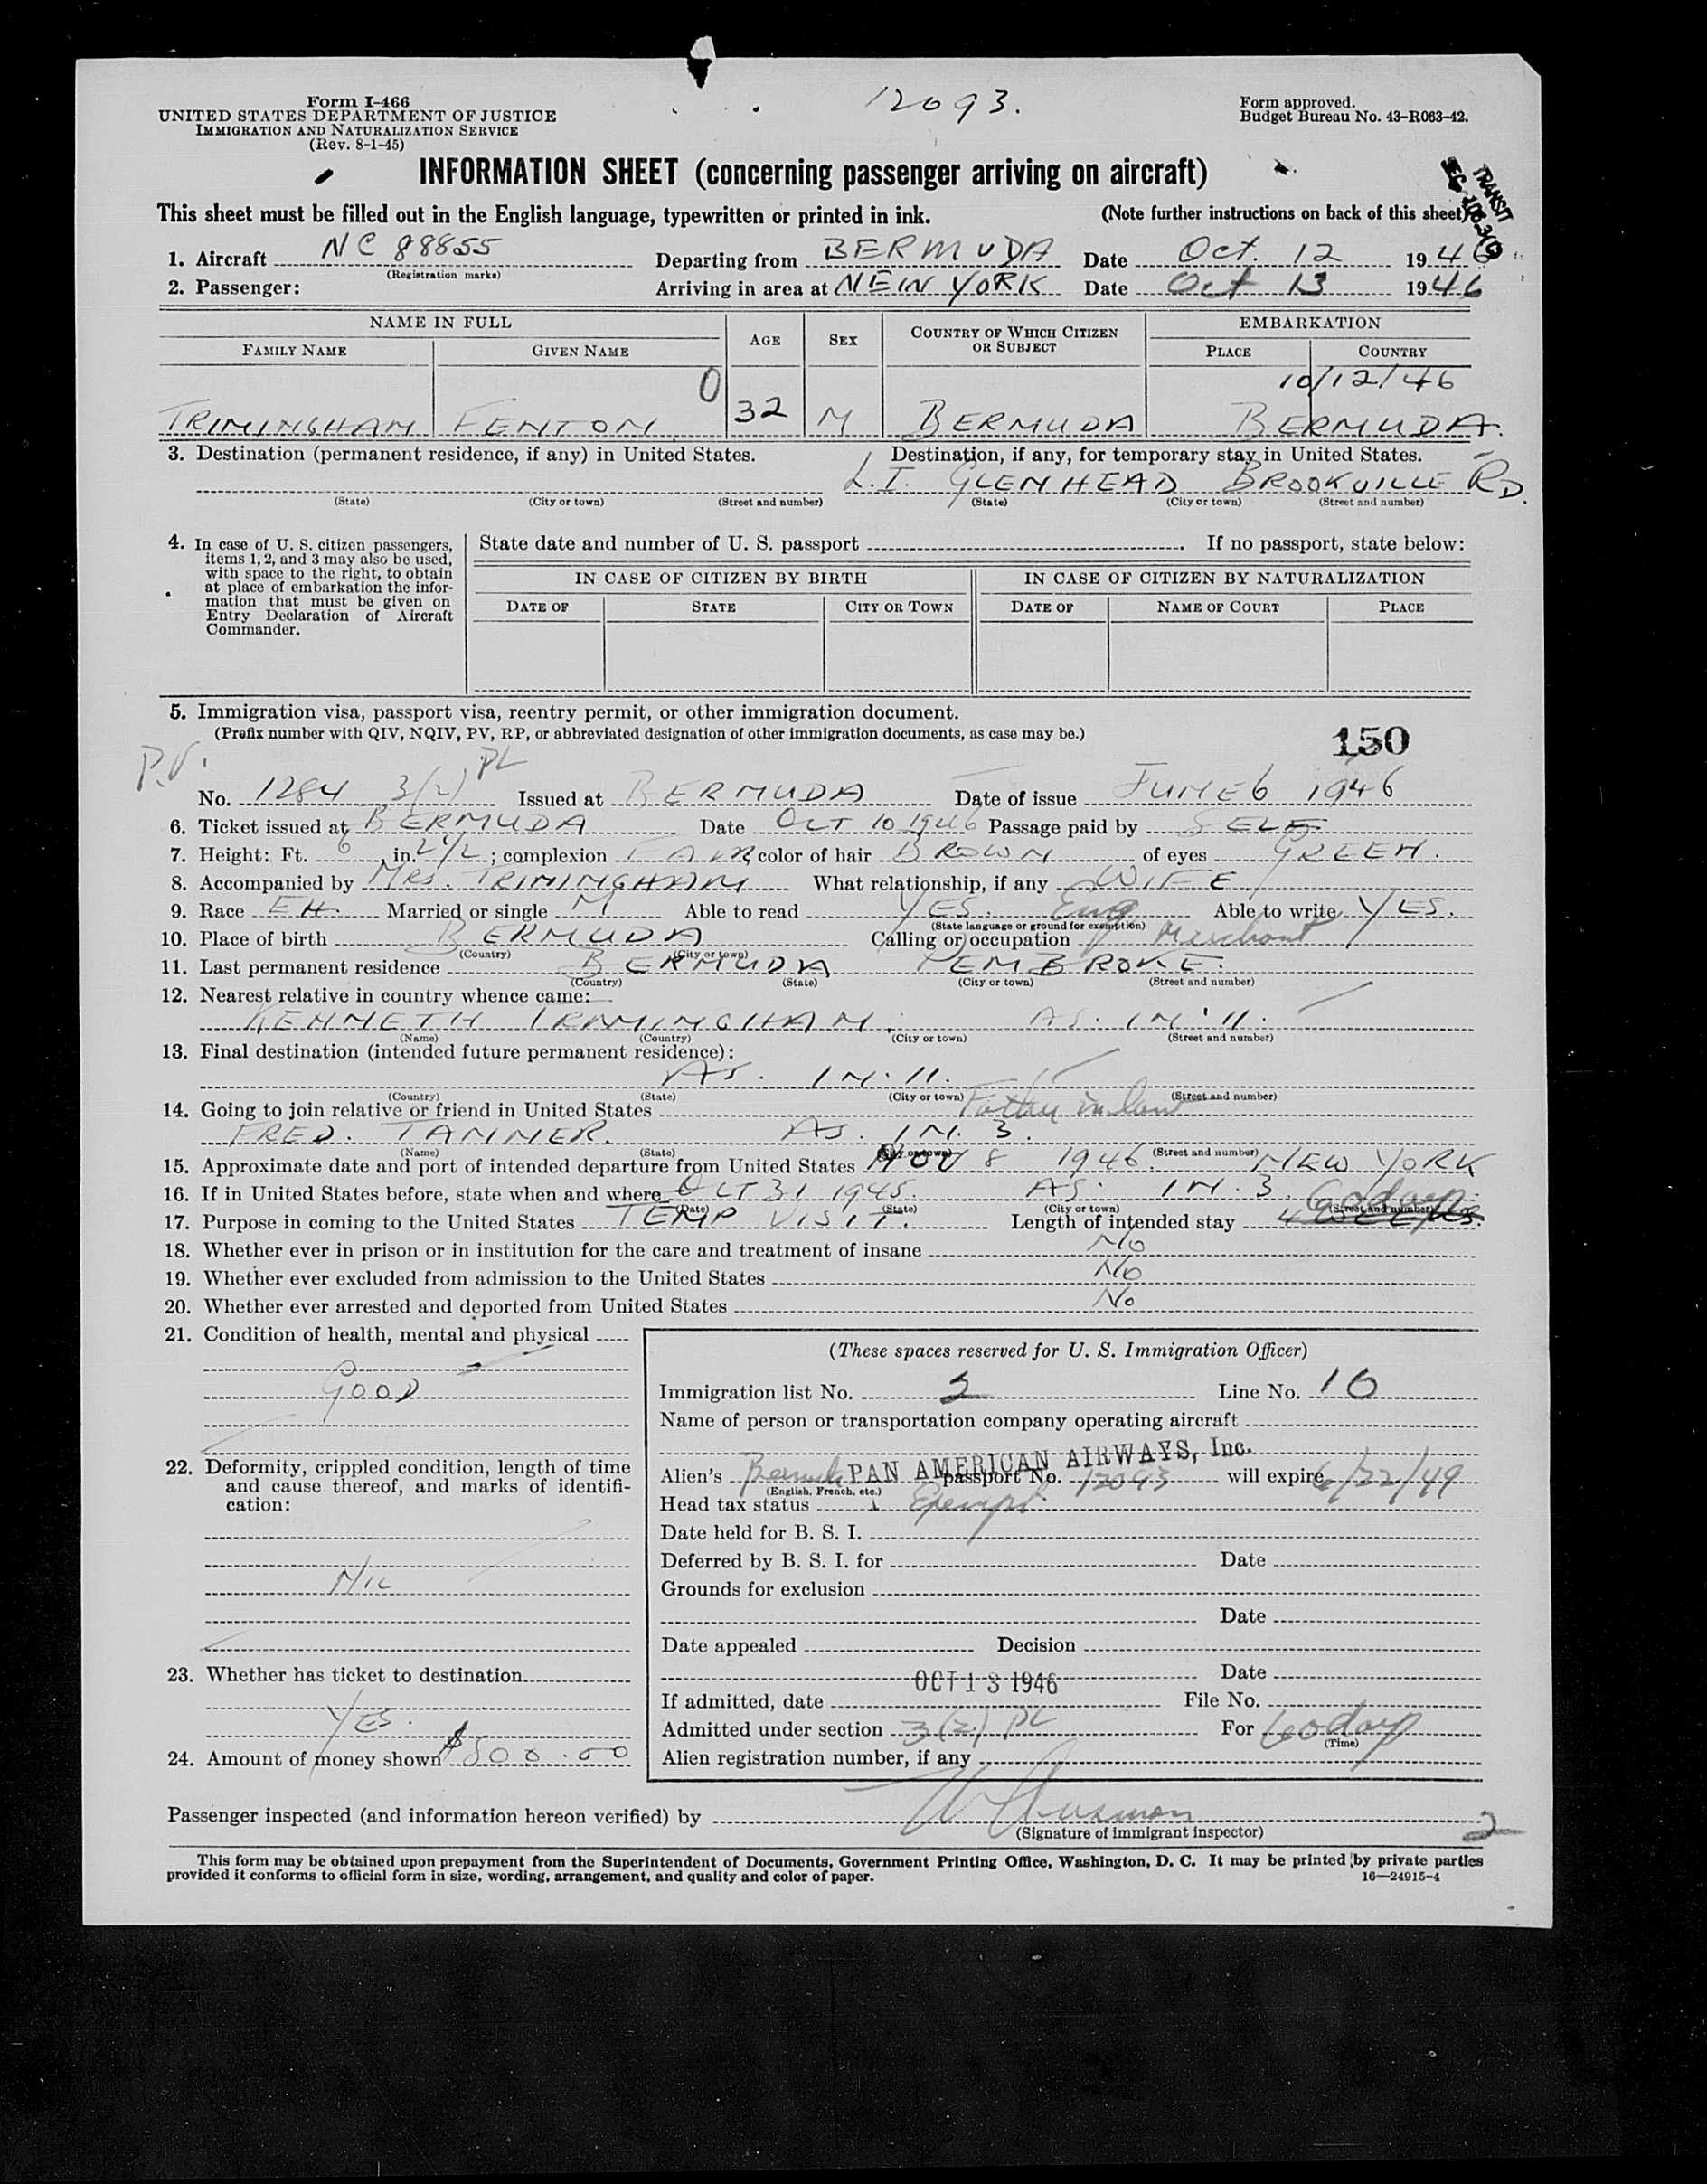 Form I-466
UNITED STATES DEPARTMENT OF JUSTICE
IMMIGRATION AND NATURALIZATION SERVICE
(Rev. 8-1-45)
12093.
Form approved.
Budget Bureau No. 43-R063-42.
INFORMATION SHEET (concerning passenger arriving on aircraft)
TRANSIT
This sheet must be filled out in the English language, typewritten or printed in ink. (Note further instructions on back of this sheet)
1. Aircraft NC 88855 Departing from BERMUDA Date Oct. 12 1946
(Registration marks)
2. Passenger: Arriving in area at NEW YORK Date Oct 13 1946
NAME IN FULL AGE SEX COUNTRY OF WHICH CITIZEN OR SUBJECT EMBARKATION
FAMILY NAME GIVEN NAME PLACE COUNTRY
0 10/12/46
TRIMINGHAM FENTON 32 M BERMUDA BERMUDA.
3. Destination (permanent residence, if any) in United States. Destination, if any, for temporary stay in United States.
L.I. GLENHEAD BROOKVILLE RD.
(State) (City or town) (Street and number) (State) (City or town) (Street and number)
4. In case of U. S. citizen passengers, items 1, 2, and 3 may also be used, with space to the right, to obtain at place of embarkation the information that must be given on Entry Declaration of Aircraft Commander.
State date and number of U. S. passport . If no passport, state below:
IN CASE OF CITIZEN BY BIRTH IN CASE OF CITIZEN BY NATURALIZATION
DATE OF STATE CITY OR TOWN DATE OF NAME OF COURT PLACE
5. Immigration visa, passport visa, reentry permit, or other immigration document.
(Prefix number with QIV, NQIV, PV, RP, or abbreviated designation of other immigration documents, as case may be.) 150
P.V. PL
No. 1284 3(2) Issued at BERMUDA Date of issue JUNE 6 1946
6. Ticket issued at BERMUDA Date OCT 10 1946 Passage paid by SELF
7. Height: Ft. 6, in. 2 1/2; complexion FAIR color of hair BROWN of eyes GREEN.
8. Accompanied by MRS. TRIMINGHAM What relationship, if any WIFE
9. Race EN. Married or single M Able to read YES. Eng Able to write YES.
(State language or ground for exemption)
10. Place of birth BERMUDA Calling or occupation Merchant
(Country) (City or town)
11. Last permanent residence BERMUDA PEMBROKE.
(Country) (State) (City or town) (Street and number)
12. Nearest relative in country whence came:
KENNETH TRIMINGHAM. AS. IN '11.
(Name) (Country) (City or town) (Street and number)
13. Final destination (intended future permanent residence):
AS. IN. 11.
(Country) (State) (City or town) (Street and number)
14. Going to join relative or friend in United States Father in law
FRED. TANNER. AS. IN. 3.
(Name) (State) (City or town) (Street and number)
15. Approximate date and port of intended departure from United States NOV 8 1946. NEW YORK
16. If in United States before, state when and where OCT 31 1945. AS. IN. 3.
(Date) (State) (City or town) (Street and number)
60 days
17. Purpose in coming to the United States TEMP VISIT. Length of intended stay 4 WEEKS.
18. Whether ever in prison or in institution for the care and treatment of insane No
19. Whether ever excluded from admission to the United States No
20. Whether ever arrested and deported from United States No
21. Condition of health, mental and physical
GOOD
22. Deformity, crippled condition, length of time and cause thereof, and marks of identification:
NIL
23. Whether has ticket to destination
YES.
24. Amount of money shown $500.00
(These spaces reserved for U. S. Immigration Officer)
Immigration list No. 2 Line No. 10
Name of person or transportation company operating aircraft
PAN AMERICAN AIRWAYS, Inc.
Alien's Bermuda passport No. 12093 will expire 6/22/49
(English, French, etc.)
Head tax status Exempt
Date held for B. S. I.
Deferred by B. S. I. for Date
Grounds for exclusion
Date
Date appealed Decision
Date
OCT 13 1946
If admitted, date File No.
Admitted under section 3(2) PL For 60 days
(Time)
Alien registration number, if any
Passenger inspected (and information hereon verified) by
(Signature of immigrant inspector)
2
This form may be obtained upon prepayment from the Superintendent of Documents, Government Printing Office, Washington, D. C. It may be printed by private parties
provided it conforms to official form in size, wording, arrangement, and quality and color of paper. 16—24915-4